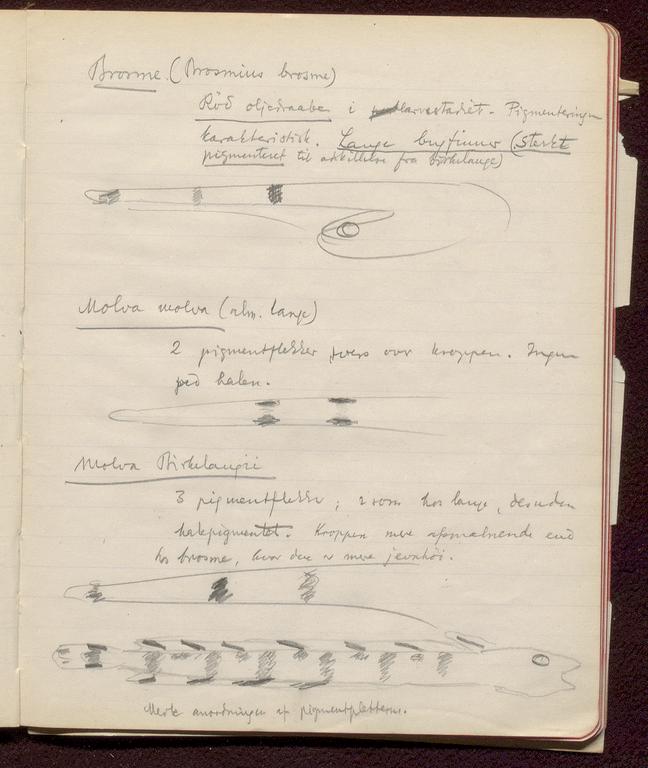 Brosme. (Brosmius brosme)
Röd oljedraabe i larvestadiet. Pigmenteringen
karakteristisk. Lange bugfinner (sterkt
pigmenteret til adskillelse fra Birkelange)
Molva molva (alm. lange)
2 pigmentflekker tvers over kroppen. Ingen
paa halen.
Molva Birkelangii
3 pigmentflekker; 2 som hos lange, desuden
halepigmentet. Kroppen mere afsmalnende end
hos brosme, hvor den er mere jevnhöi.
Merk anordningen af pigmentpletterne.